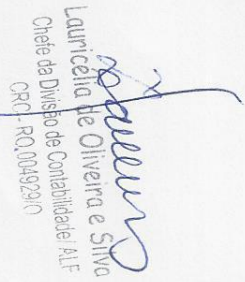 Lauricélia de Oliveira e Silva
Chefe da Divisão de Contabilidade/ALF
CRC - RO.004929/O